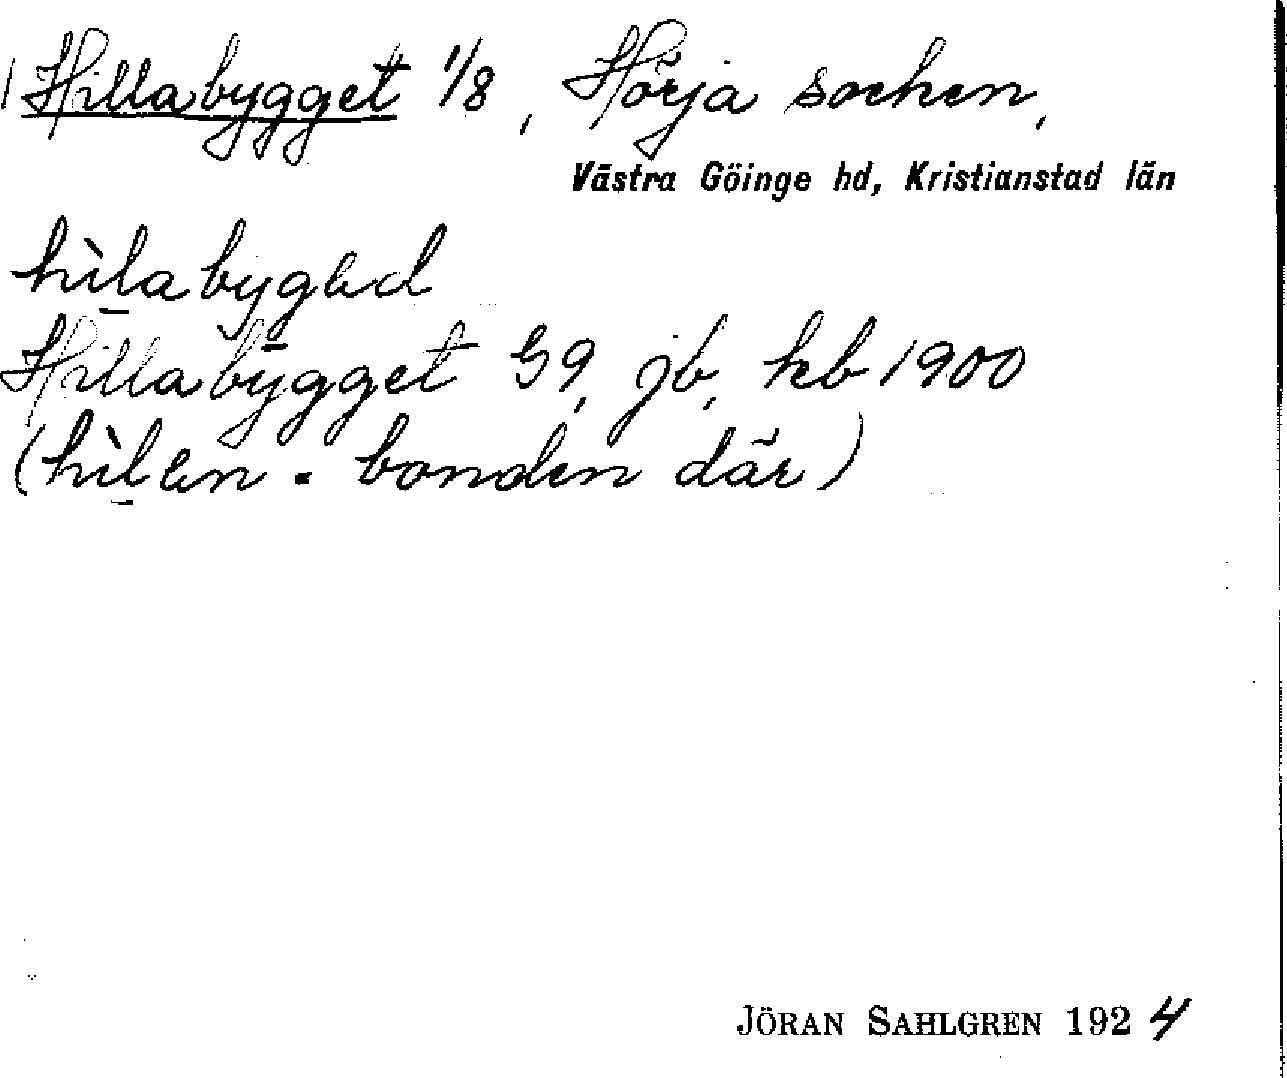 Hillabygget 1/8, Hörja socken,
Västra Göinge hd, Kristianstad län
hìlabygəd
Hillabygget G9, jb, kb 1900
(hìlen = bonden där)
JÖRAN SAHLGREN 1924